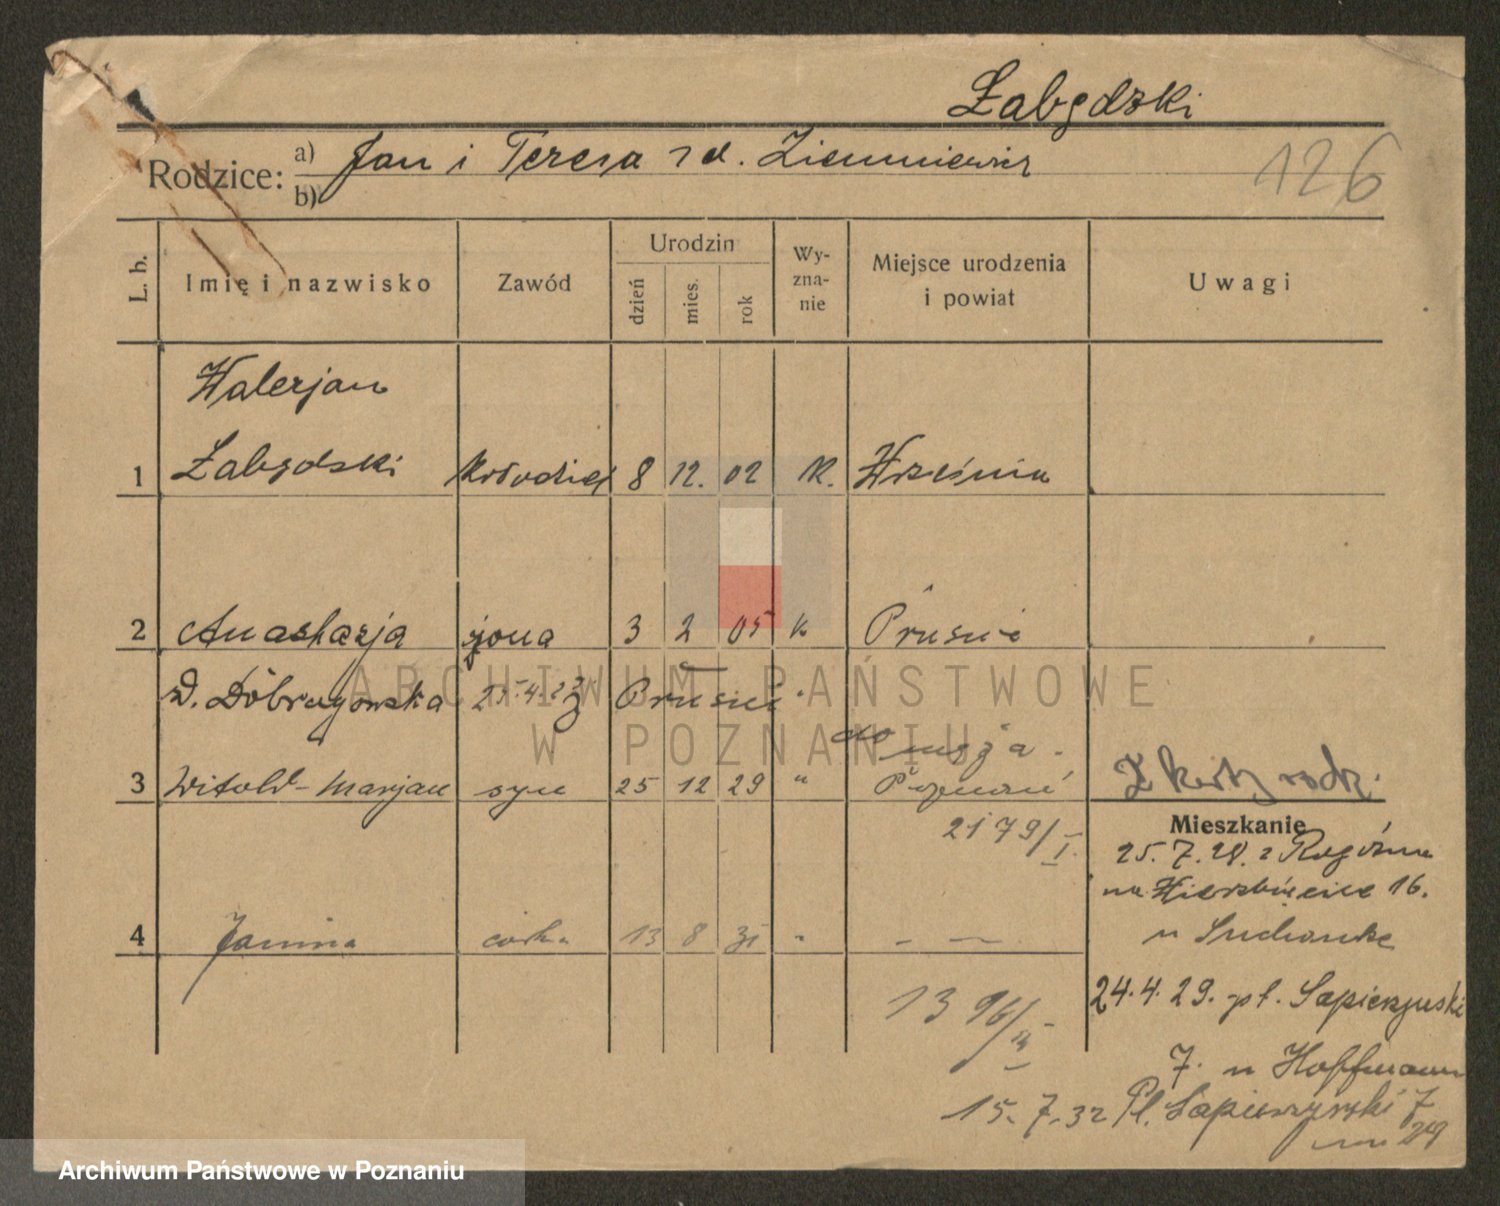 Łabędzki
Rodzice: a) Jan i Teresa z d. Ziemniewicz
b)
126
L. b.
Imię i nazwisko
Zawód
Urodzin
dzień
mies.
rok
Wy-
zna-
nie
Miejsce urodzenia
i powiat
Uwagi
Walerjan
1 Łabędzki kołodziej 8 12. 02 k. Września
2 Anastazja żona 3 2 05 k Prusie
d. Dobrzykowska 25.4.23
do męża.
3 Witold-Marjan syn 25 12 29 " Poznań
Z karty rodz.
2179/I.
Mieszkanie
25. 7. 28. z Rogoźna
na Wierzbięcice 16.
4 Janina córka 13 8 31 " — —
u Suchanke
24. 4. 29. pl. Sapieżyński
1396/
7. u Hoffmann
15. 7. 32 Pl. Sapieżyński 7
29
ARCHIWUM PAŃSTWOWE
W POZNANIU
Archiwum Państwowe w Poznaniu